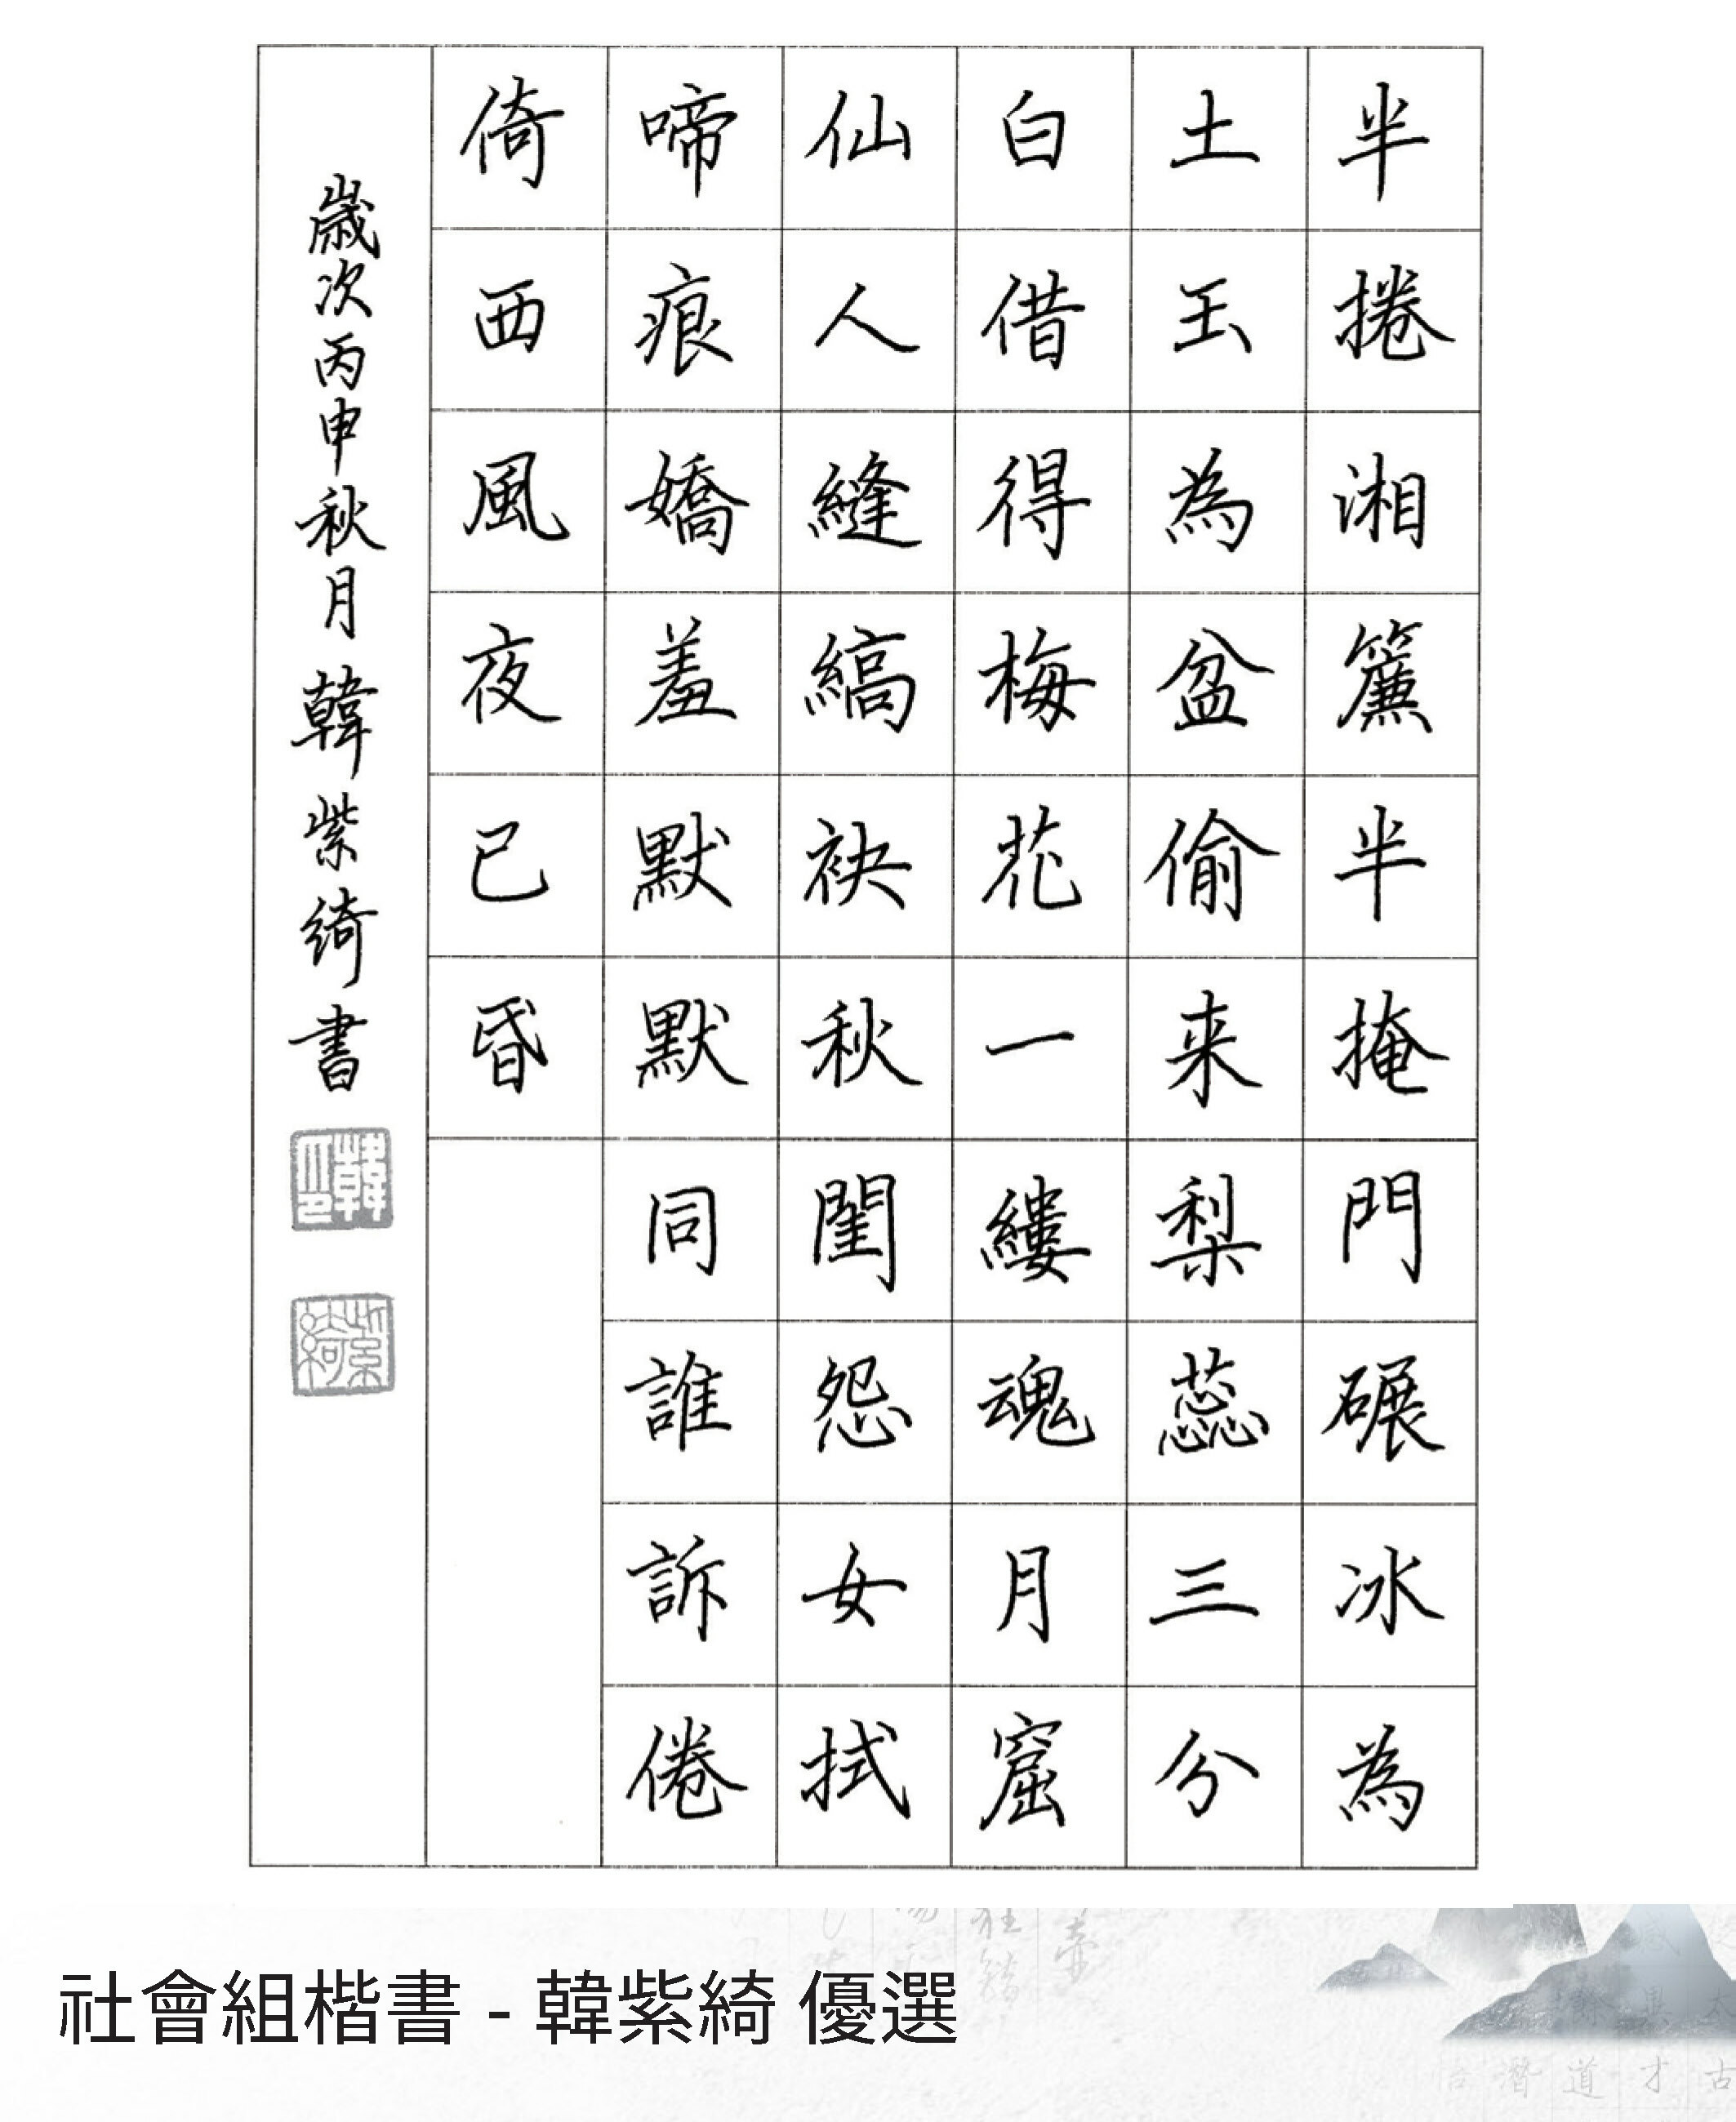 半捲湘簾半掩門碾冰為
土玉為盆偷来梨蕊三分
白借得梅花一縷魂月窟
仙人縫縞袂秋閨怨女拭
啼痕嬌羞默默同誰訴倦
倚西風夜已昏
歲次丙申秋月韓紫綺書
社會組楷書 - 韓紫綺 優選